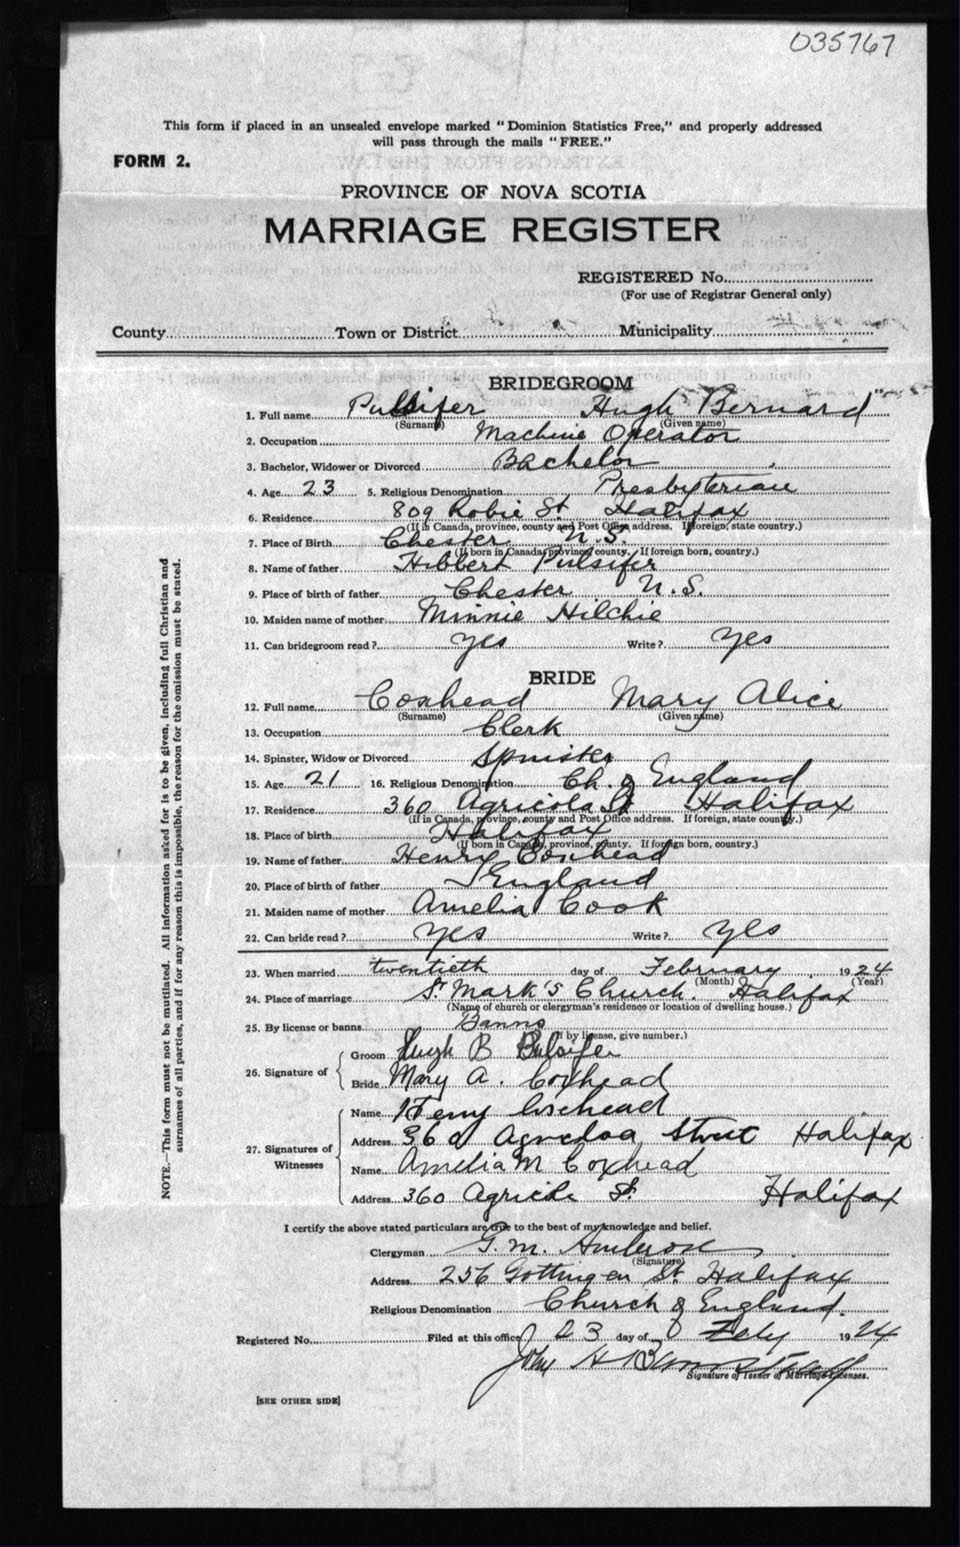 035767
This form if placed in an unsealed envelope marked "Dominion Statistics Free," and properly addressed
will pass through the mails "FREE."
FORM 2.
PROVINCE OF NOVA SCOTIA
MARRIAGE REGISTER
REGISTERED No.
(For use of Registrar General only)
County Town or District Municipality
BRIDEGROOM
1. Full name Pulsifer Hugh Bernard
(Surname) (Given name)
2. Occupation Machine Operator
3. Bachelor, Widower or Divorced Bachelor
4. Age 23 5. Religious Denomination Presbyterian
6. Residence 809 Robie St. Halifax
(If in Canada, province, county and Post Office address. If foreign, state country.)
7. Place of Birth Chester N.S.
(If born in Canada, province, county. If foreign born, country.)
8. Name of father Hibbert Pulsifer
9. Place of birth of father Chester N.S.
10. Maiden name of mother Minnie Hilchie
11. Can bridegroom read? Yes Write? Yes
BRIDE
12. Full name Coxhead Mary Alice
(Surname) (Given name)
13. Occupation Clerk
14. Spinster, Widow or Divorced Spinister
15. Age 21 16. Religious Denomination Ch. of England
17. Residence 360 Agricola St Halifax
(If in Canada, province, county and Post Office address. If foreign, state country.)
18. Place of birth Halifax
(If born in Canada, province, county. If foreign born, country.)
19. Name of father Henry Coxhead
20. Place of birth of father England
21. Maiden name of mother Amelia Cook
22. Can bride read? Yes Write? Yes
23. When married twentieth day of February 1924
(Month) (Year)
24. Place of marriage St. Mark's Church. Halifax
(Name of church or clergyman's residence or location of dwelling house.)
25. By license or banns Banns
(If by license, give number.)
26. Signature of
Groom Hugh B Pulsifer
Bride Mary A. Coxhead
27. Signatures of Witnesses
Name Henry Coxhead
Address 360 Agricola Street Halifax
Name Amelia M Coxhead
Address 360 Agricola St. Halifax
I certify the above stated particulars are true to the best of my knowledge and belief.
Clergyman G. M. Ambrose
(Signature)
Address 256 Gottingen St. Halifax
Religious Denomination Church of England.
Registered No. Filed at this office 23 day of Feby 1924
John H Barnstead
Signature of Issuer of Marriage Licenses.
[SEE OTHER SIDE]
NOTE.—This form must not be mutilated. All information asked for is to be given, including full Christian and
surnames of all parties, and if for any reason this is impossible, the reason for the omission must be stated.